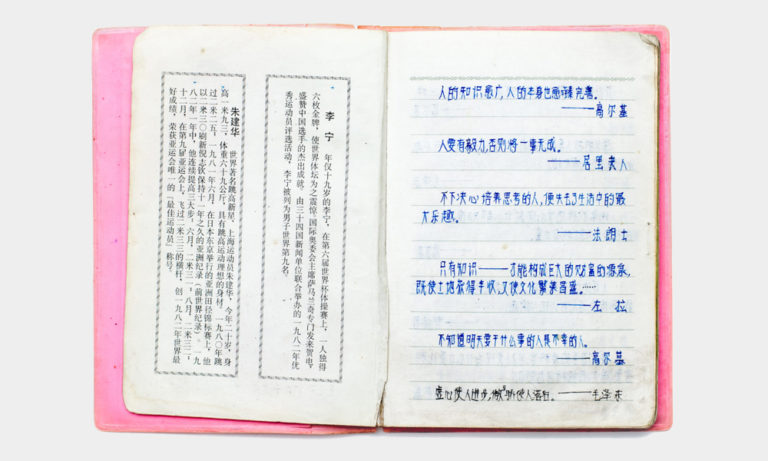 李宁 年仅十九岁的李宁，在第六届世界杯体操赛上，一人独得
六枚金牌，使世界体坛为之震惊。国际奥委会主席萨马兰奇专门发来贺电，
盛赞中国选手的杰出成就。由三十四国新闻单位联合举办的一九八二年优
秀运动员评选活动，李宁被列为男子世界第九名。
朱建华 世界著名跳高新星，上海运动员朱建华，今年二十岁，身
高一米九三，体重六十九公斤，具有跳高运动理想的身材。一九八〇年跳
过二米二五，一九八一年六月，在日本东京举行的亚洲田径锦标赛上，他
以二米三〇刷新倪志钦保持十一年之久的亚洲纪录（前世界纪录）。一九
八二年一年中，他连续提高三大步：六月，二米三一，八月，二米三二，
十二月，在第九届亚运会上，飞过二米三三的横杆，创一九八二年世界最
好成绩，荣获亚运会唯一的「最佳运动员」称号。
人的知识愈广，人的本身也愈臻完善。
——高尔基
人要有毅力，否则将一事无成。
——居里夫人
不下决心培养思考的人，便失去了生活中的最
大乐趣。
——法朗士
只有知识——才能构成巨大的财富的源泉，
既使土地获得丰收，又使文化繁荣昌盛。……
——左拉
不知道明天要干什么事的人是不幸的人。
——高尔基
虚心使人进步，骄傲使人落后。——毛泽东